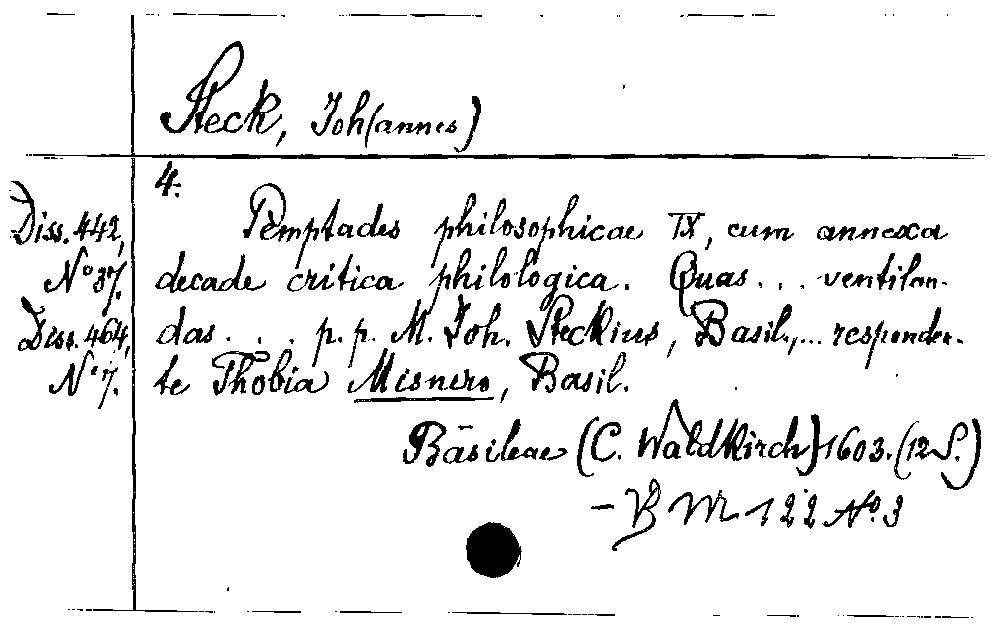 Steck, Joh(annes)
4.
Diss. 442, Pemptades philosophicae IX, cum annexa
No 37. decade critica philologica. Quas... ventilan-
Diss. 464, das... p. p. M. Joh. Steckius, Basil.,... responden-
No 7. te Thobia Misnero, Basil.
Basileae (C. Waldkirch) 1603. (12 S.)
- B M 122 No. 3